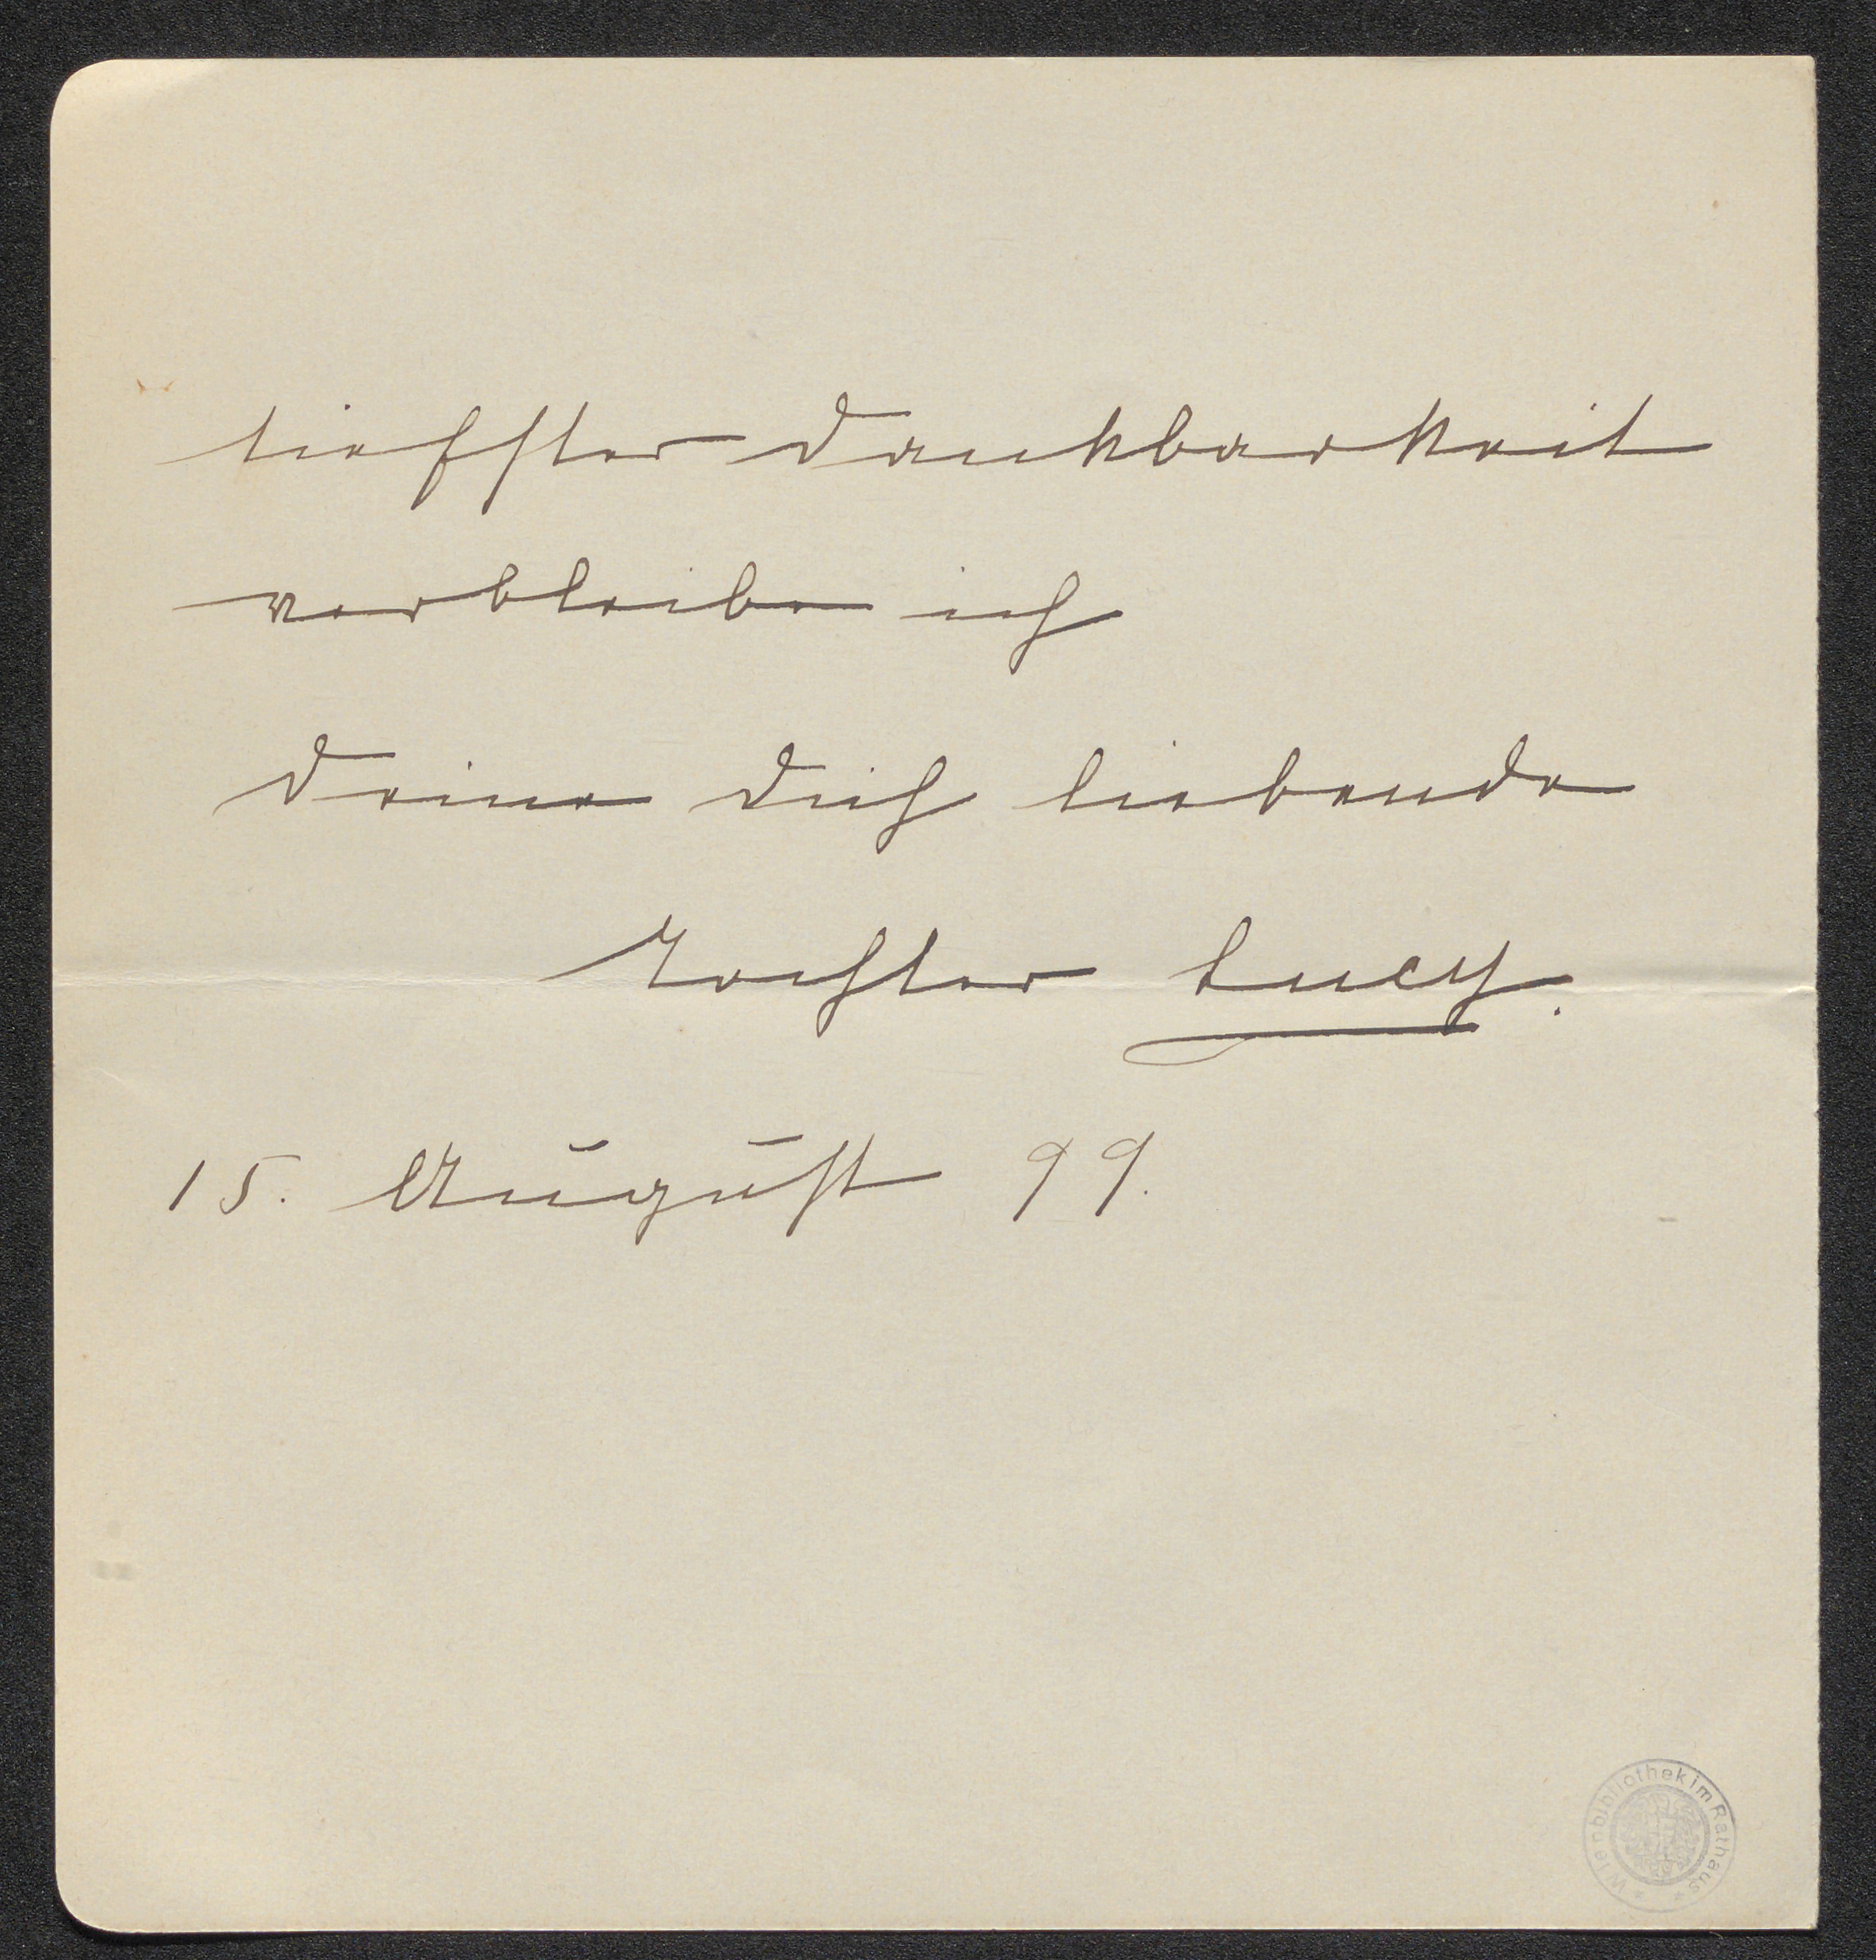 tiefster Dankbarkeit
verbleibe ich
Deine Dich liebende
Tochter Lucy.
15. August 99.
Wienbibliothek im Rathaus